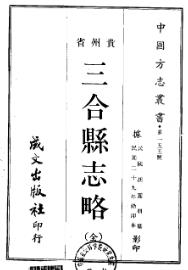 中國方志叢書·第一五五號
據民國
民國二十九年
影印
貴州省
三合縣志略
(全)
成文出版社印行